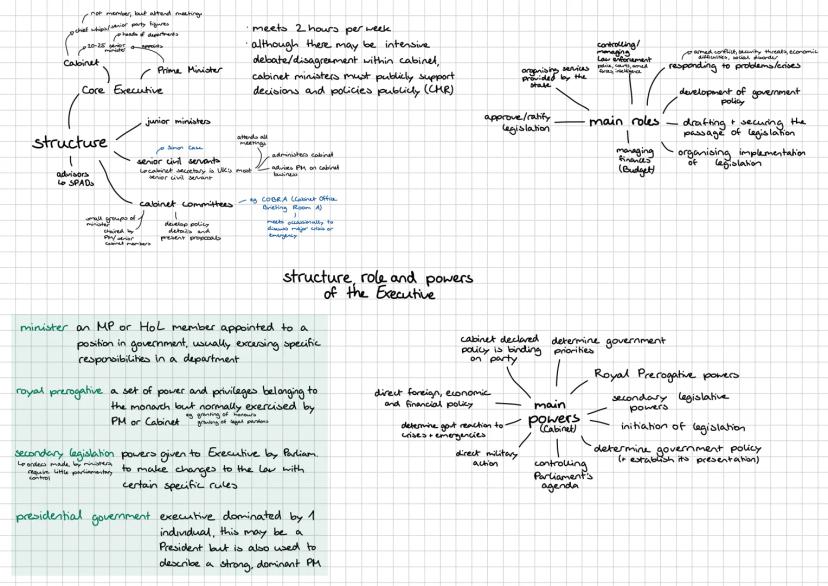 not member, but attend meetings
chief whips/senior party figures
heads of departments
20-25 senior ministers
Cabinet
Prime Minister
Core Executive
structure
junior ministers
Simon Case
senior civil servants
↳ cabinet secretary is UK's most
senior civil servant
attends all
meetings
administers cabinet
advises PM on cabinet
business
advisors
↳ SPADs
cabinet committees
small groups of
minister
chaired by
PM/senior
cabinet members
develop policy
details and
present proposals
eg COBRA (Cabinet Office
Briefing Room A)
meets occasionally to
discuss major crisis or
emergency
· meets 2 hours per week
· although there may be intensive
debate/disagreement within cabinet,
cabinet ministers must publicly support
decisions and policies publicly (CMR)
main roles
organising services
provided by the
state
controlling/
managing
law enforcement
police, courts, armed
forces, intelligence
armed conflict, security threats, economic
difficulties, social disorder
responding to problems/crises
development of government
policy
drafting + securing the
passage of legislation
organising implementation
of legislation
managing
finances
(Budget)
approve/ratify
legislation
structure, role and powers
of the Executive
minister an MP or HoL member appointed to a
position in government, usually excersing specific
responsibilities in a department
royal prerogative a set of power and privileges belonging to
the monarch but normally exercised by
PM or Cabinet eg granting of honours
granting of legal pardons
secondary legislation powers given to Executive by Parliam.
↳ orders made by ministers,
require little parliamentary
control
to make changes to the law with
certain specific rules
presidential government executive dominated by 1
individual, this may be a
President but is also used to
describe a strong, dominant PM
main
powers
(Cabinet)
cabinet declared
policy is binding
on party
determine government
priorities
Royal Prerogative powers
secondary legislative
powers
initiation of legislation
determine government policy
(+ establish its presentation)
controlling
Parliament's
agenda
direct military
action
determine govt reaction to
crises + emergencies
direct foreign, economic
and financial policy